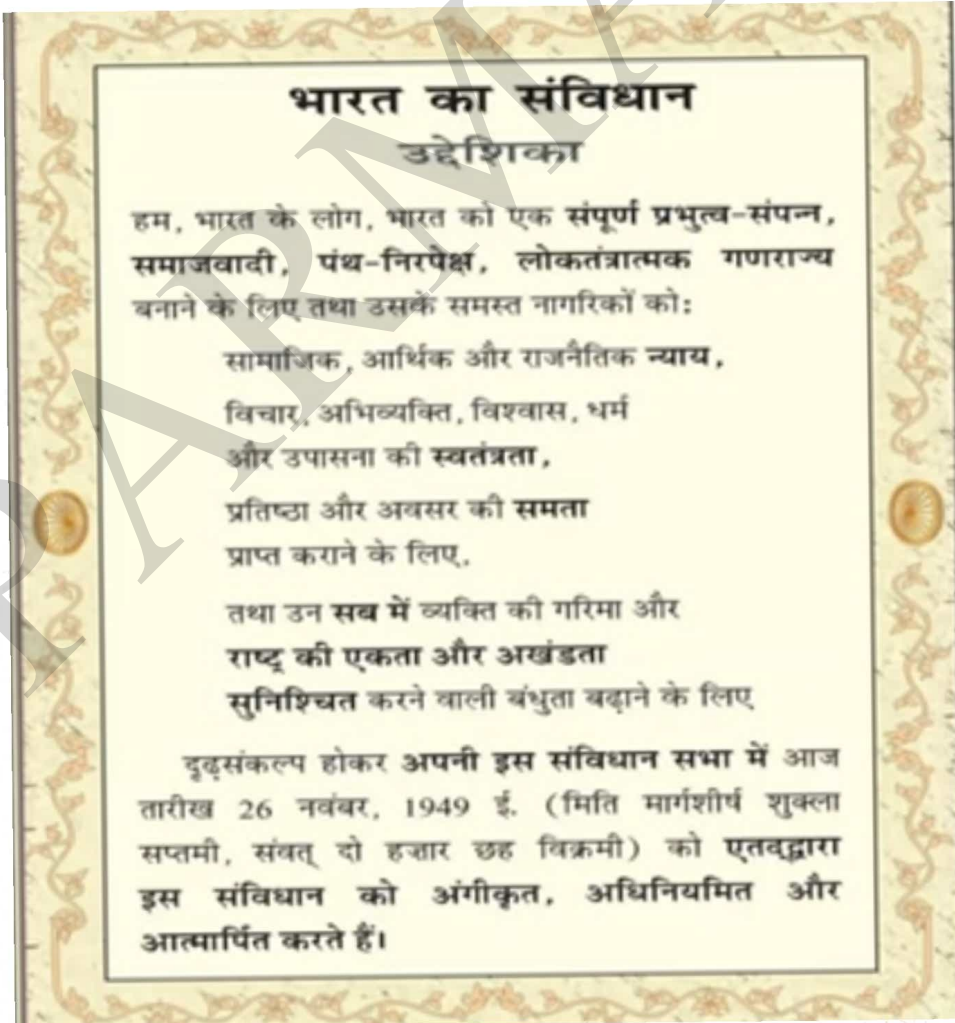 भारत का संविधान
उद्देशिका
हम, भारत के लोग, भारत को एक संपूर्ण प्रभुत्व-संपन्न,
समाजवादी, पंथ-निरपेक्ष, लोकतंत्रात्मक गणराज्य
बनाने के लिए तथा उसके समस्त नागरिकों को:
सामाजिक, आर्थिक और राजनैतिक न्याय,
विचार, अभिव्यक्ति, विश्वास, धर्म
और उपासना की स्वतंत्रता,
प्रतिष्ठा और अवसर की समता
प्राप्त कराने के लिए,
तथा उन सब में व्यक्ति की गरिमा और
राष्ट्र की एकता और अखंडता
सुनिश्चित करने वाली बंधुता बढ़ाने के लिए
दृढ़संकल्प होकर अपनी इस संविधान सभा में आज
तारीख 26 नवंबर, 1949 ई. (मिति मार्गशीर्ष शुक्ला
सप्तमी, संवत् दो हज़ार छह विक्रमी) को एतद्द्वारा
इस संविधान को अंगीकृत, अधिनियमित और
आत्मार्पित करते हैं।
PARMA